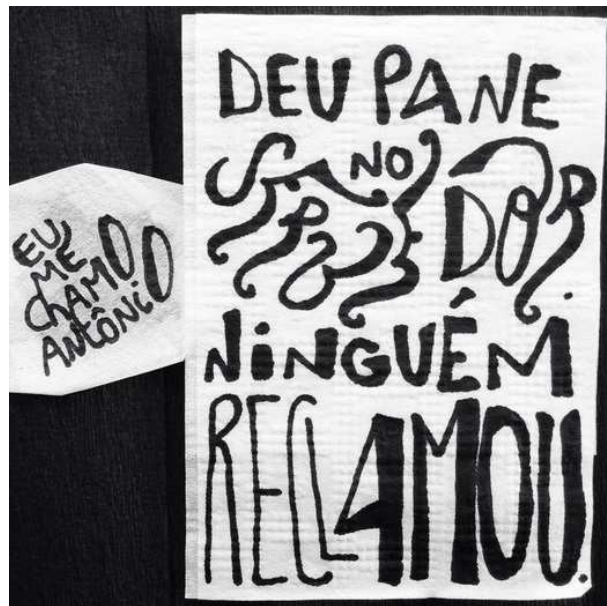 EU
ME
CHAMO
ANTÔNIO
DEU PANE
NO
DOR.
NINGUÉM
RECLAMOU.